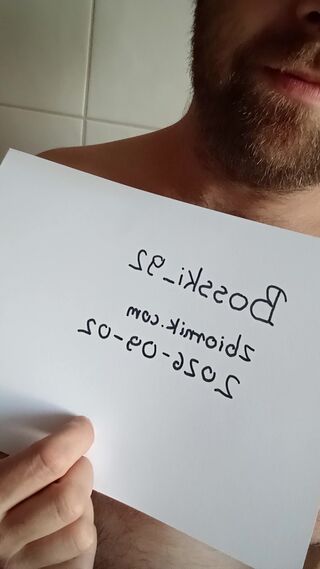 Bosski_92
zbiornik.com
2026-09-02